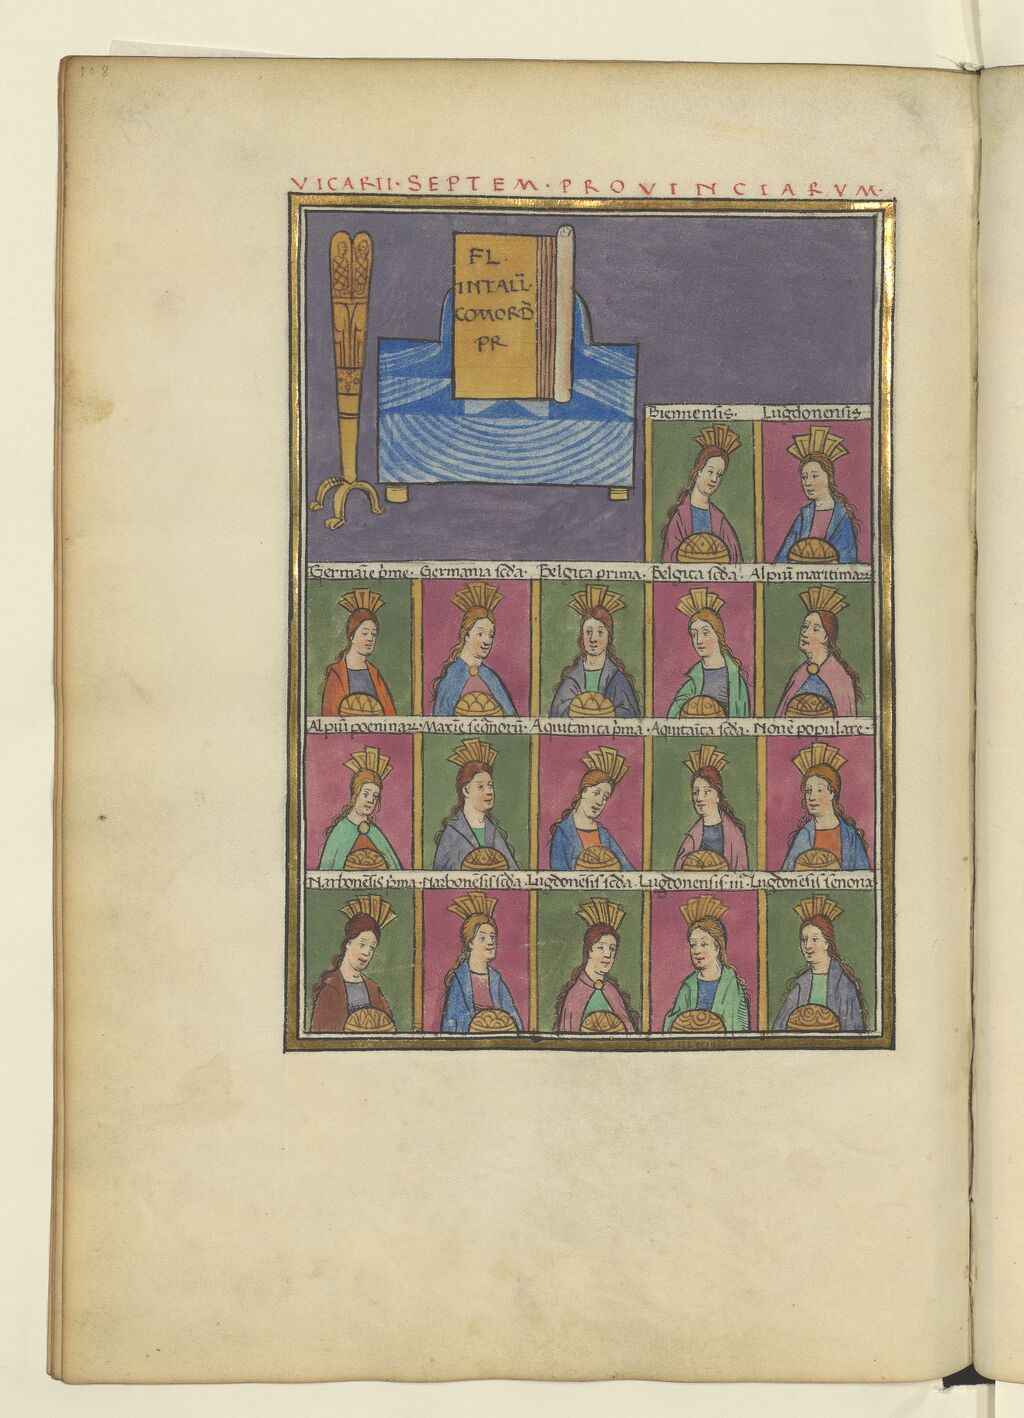 108
VICARII · SEPTEM · PROVINCIARVM ·
FL ·
INTALL̄ ·
COMORD̄
PR
Biennensis · Lugdonensis
Germāīe p̄me · Germania sc̄da · Belgica prima · Belgica sc̄da · Alpiū maritimaꝝ
Alpiū poeninaꝝ · Maxīe seq̄noꝝū · Aquitanica p̄ma · Aquitaīca sc̄da · Novē populare ·
Narbonēsis p̄ma · Narbonēsis sc̄da · Lugdonēsis sc̄da · Lugdonensis iiiᵃ Lugdonēsis senona